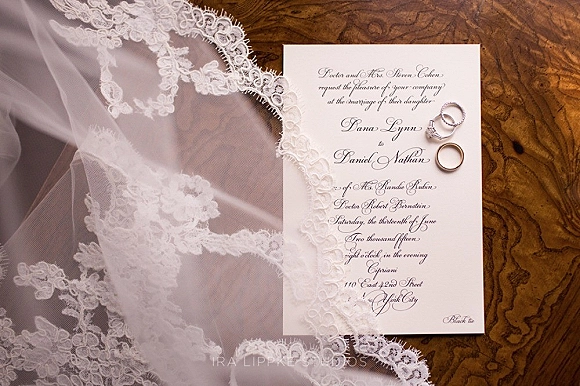 Doctor and Mrs. Steven Cohen
request the pleasure of your company
at the marriage of their daughter
Dana Lynn
to
Daniel Nathan
of Ms. Randie Rubin
Doctor Robert Bernstein
Saturday, the thirteenth of June
Two thousand fifteen
o'clock, in the evening
Cipriani
110 East 42nd Street
York City
Black tie
IRA LIPPKE STUDIOS